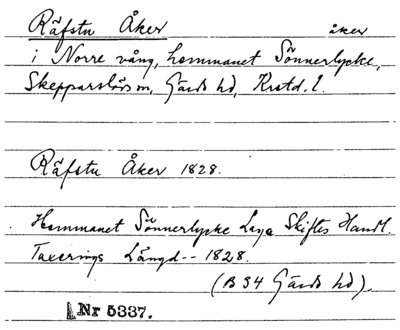 Räfstu Åker åker
i Norre vång, hemmanet Sönnerlycke,
Skepparslövs sn, Gärds hd, Krstd. l.
Räfstu Åker 1828.
Hemmanet Sönnerlycke Laga Skiftes Handl.
Taxerings Längd -- 1828.
(B 34 Gärds hd).
Nr 5337.